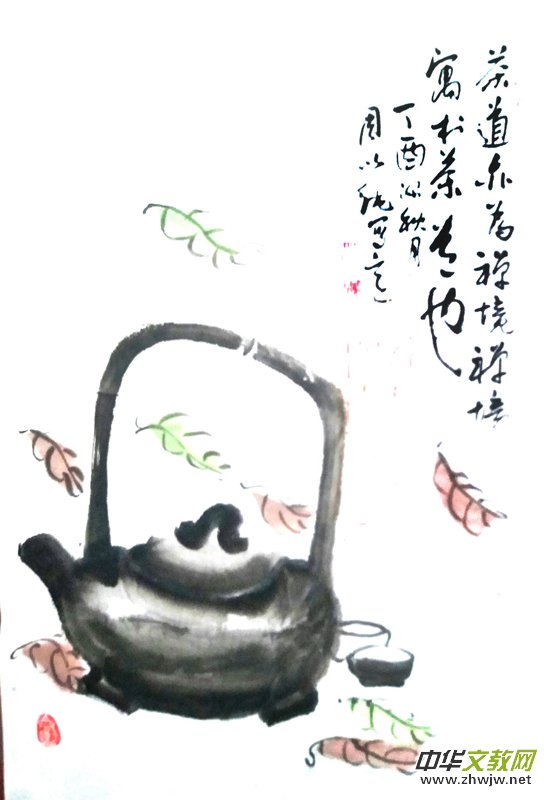 茶道亦為禅境禅境
寓於茶道也
丁酉秋月
周以寫意
中华文教网
www.zhwjw.net